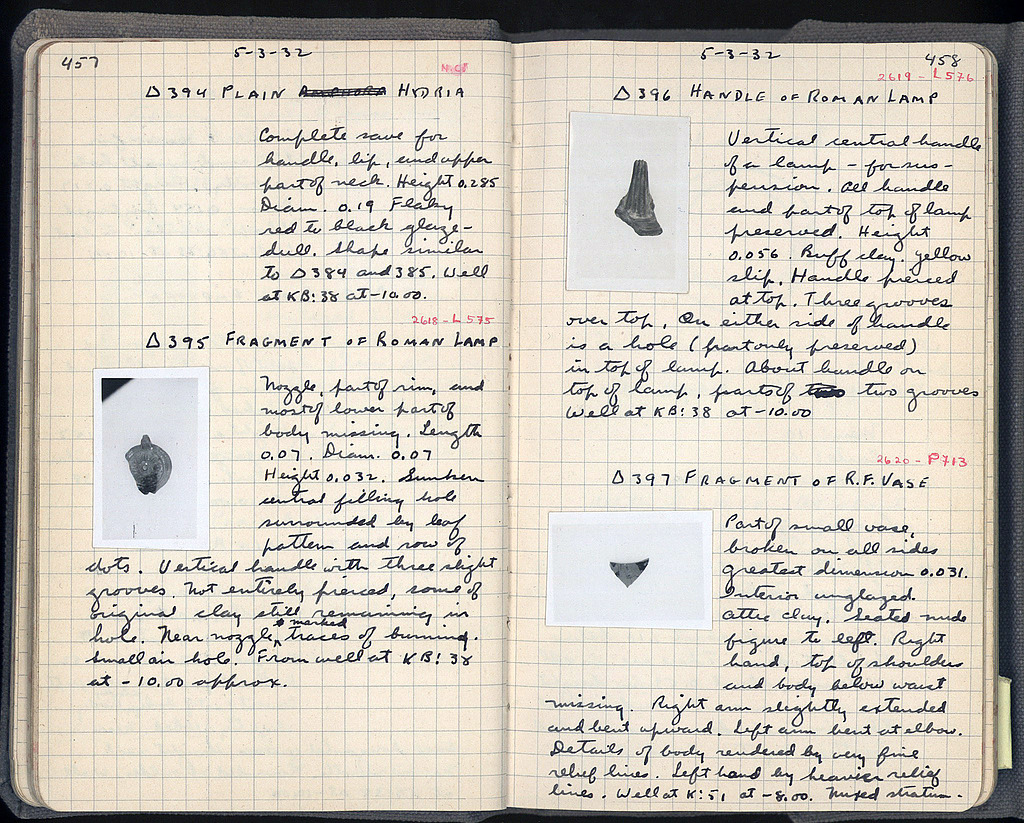 457
5-3-32
N.C.
Δ394 PLAIN HYDRIA
Complete save for
handle, lip, and upper
part of neck. Height 0.285
Diam. 0.19 Flaky
red to black glaze-
dull. Shape similar
to Δ384 and 385. Well
at KB:38 at -10.00.
2618 - L 575
Δ395 FRAGMENT OF ROMAN LAMP
Nozzle, part of rim, and
most of lower part of
body missing. Length
0.07. Diam. 0.07
Height 0.032. Sunken
central filling hole
surrounded by leaf
pattern and row of
dots. Vertical handle with three slight
grooves. Not entirely pierced, some of
original clay still remaining in
hole. Near nozzle, marked traces of burning.
Small air hole. From well at KB:38
at -10.00 approx.
5-3-32
458
2619 - L576
Δ396 HANDLE OF ROMAN LAMP
Vertical central handle
of a lamp - for sus-
pension. All handle
and part of top of lamp
preserved. Height
0.056. Buff clay. Yellow
slip. Handle pierced
at top. Three grooves
over top. On either side of handle
is a hole (part only preserved)
in top of lamp. About handle on
top of lamp, parts of two grooves
Well at KB:38 at -10.00
2620 - P713
Δ397 FRAGMENT OF R.F. VASE
Part of small vase,
broken on all sides
greatest dimension 0.031.
Interior unglazed.
Attic clay. Seated nude
figure to left. Right
hand, top of shoulders
and body below waist
missing. Right arm slightly extended
and bent upward. Left arm bent at elbow.
Details of body rendered by very fine
relief lines. Left hand by heavier relief
lines. Well at K:51 at -8.00. Mixed stratum.